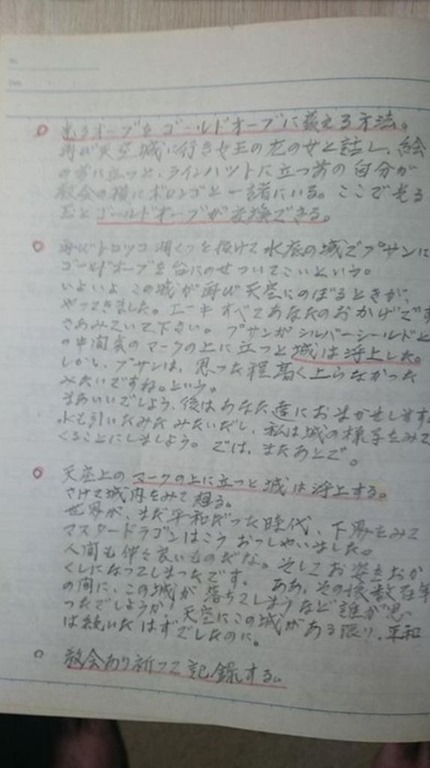 光るオーブをゴールドオーブに替える方法。
再び天空城に行き女王の尤の女と話し、絵
の前に立つと、ラインハットに立つ前の自分が
教会の横にボロンゴと一緒にいる。ここで光る
玉とゴールドオーブが交換できる。
再びトロッコ洞くつを抜けて水底の城でプサンに
ゴールドオーブを台にのせついてこいという。
いよいよこの城が再び天空にのぼるときが、
やってきました。エーキすべてあなたのおかげです
さあみていて下さい。プサンがシルバーシールドと
の中間点のマークの上に立つと城は浮上した。
しかし、プサンは、思った程高く上らなかった
みたいですね。という。
まあいいでしょう、後はあなた達におまかせします
水も引いたみたみたいだし、私は城の様子をみて
くることにしましよう。では、またあとで。
天空上のマークの上に立つと城は浮上する。
さけて城内をみて廻る。
世界が、まだ平和だった時代、下界をみて
マスタードラゴンはこうおっしゃいました。
人間も仲々良いものだな。そしてお姿をおか
くしになってしまったです。ああ、その後数百年
の間に、この城が落ちてしまうなど誰が思
ったでしょうか 天空にこの城がある限り、平和
は続いたはずでしたのに。
教会あり祈って記録する。